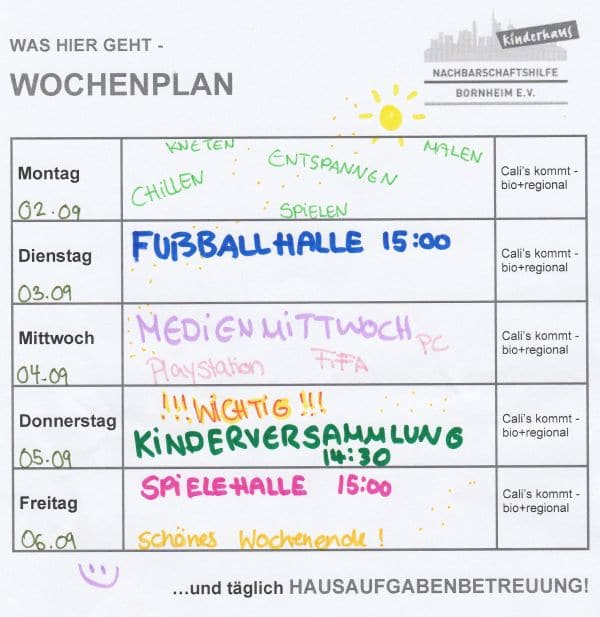 WAS HIER GEHT -
WOCHENPLAN
Kinderhaus
NACHBARSCHAFTSHILFE
BORNHEIM E.V.
Montag
02.09
KNETEN
ENTSPANNEN
MALEN
CHILLEN
SPIELEN
Cali's kommt -
bio+regional
Dienstag
03.09
FUßBALLHALLE 15:00
Cali's kommt -
bio+regional
Mittwoch
04.09
MEDIENMITTWOCH
PC
Playstation FIFA
Cali's kommt -
bio+regional
Donnerstag
05.09
!!! WICHTIG !!!
KINDERVERSAMMLUNG
14:30
Cali's kommt -
bio+regional
Freitag
06.09
SPIELEHALLE 15:00
Schönes Wochenende!
Cali's kommt -
bio+regional
...und täglich HAUSAUFGABENBETREUUNG!